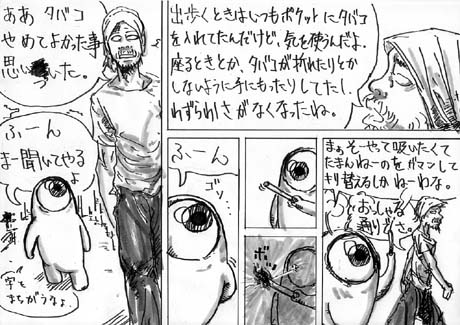 ああ タバコ
やめてよかった事
思いついた。
ふーん
まー聞いてやる
よ
字も
まちがうなよ
出歩くときはいつもポケットにタバコ
を入れてたんだけど、気を使うんだよ.
座るときとか、タバコが折れたりとか
しないように手にもったりしてたし.
わずらわしさがなくなったね。
ふーん
ゴソ
ボ
まぁそーやって吸いたくて
たまんねーのをガマンして
キリ替えるしかねーわな。
おっしゃる
通りでさ。